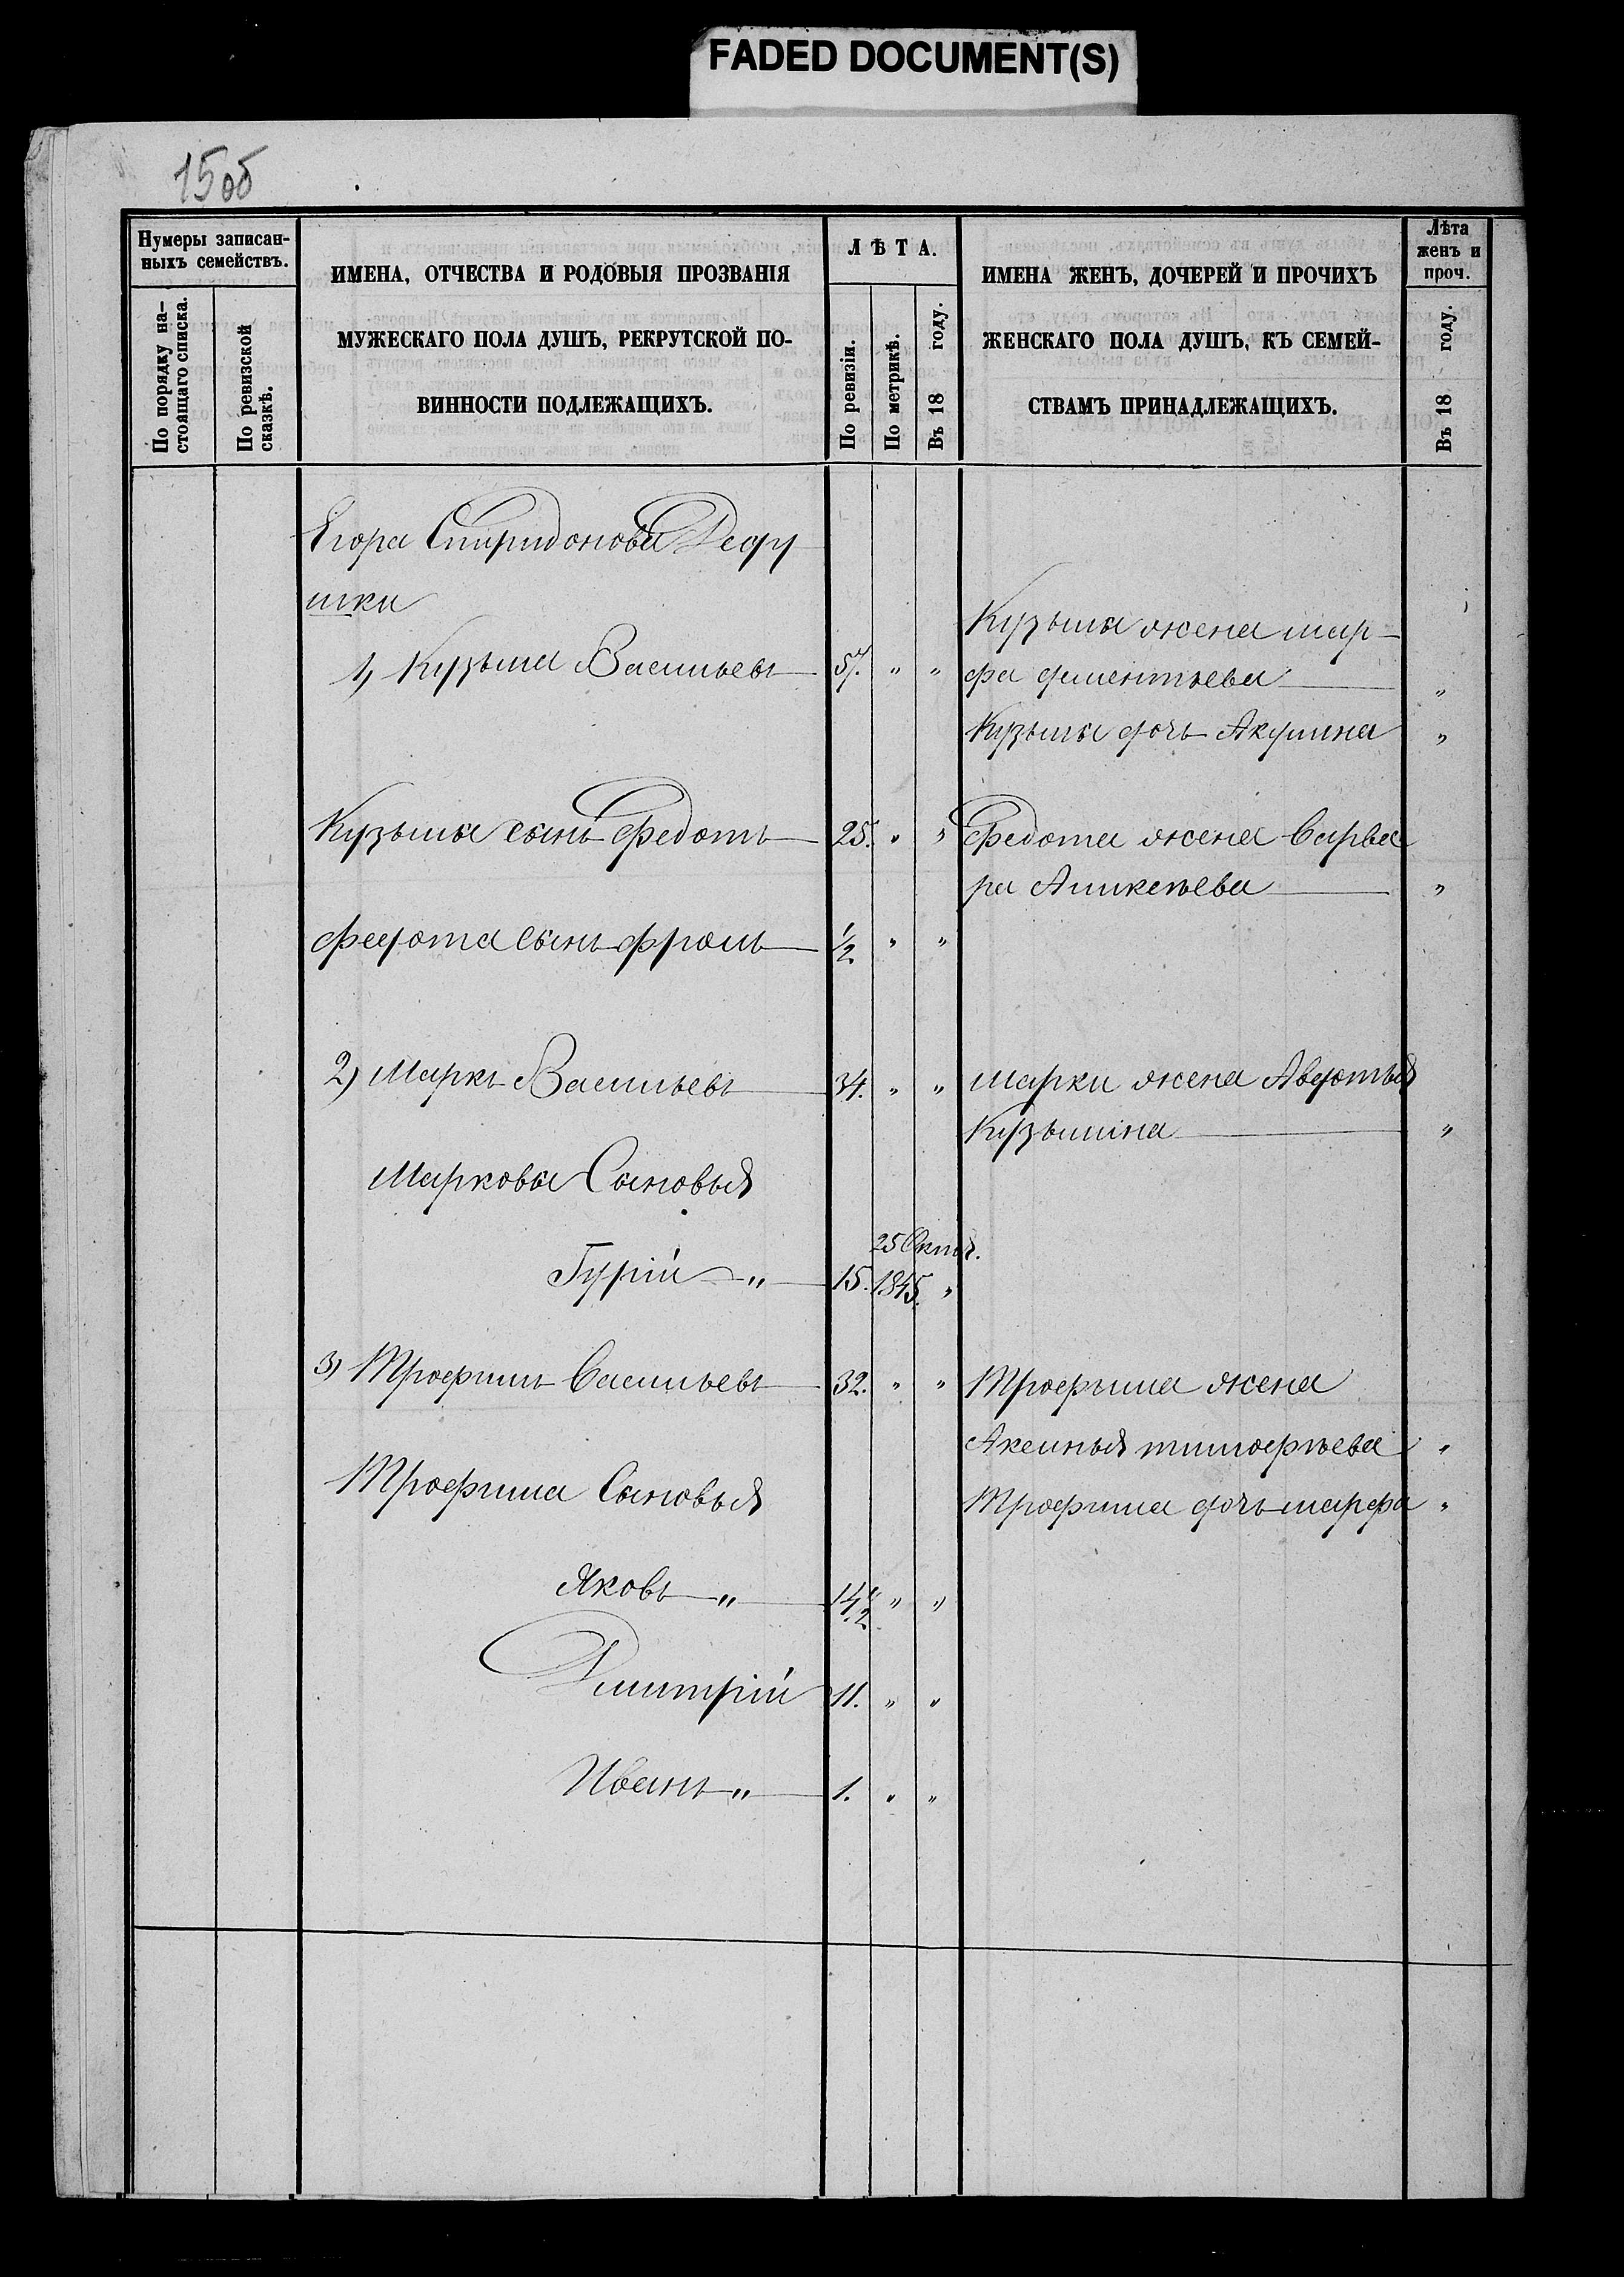 FADED DOCUMENT(S)
15 об
Нумеры записан-
ныхъ семействъ.
По порядку на-
стоящаго списка.
По ревизской
сказкѣ.
ИМЕНА, ОТЧЕСТВА И РОДОВЫЯ ПРОЗВАНІЯ
МУЖЕСКАГО ПОЛА ДУШЪ, РЕКРУТСКОЙ ПО-
ВИННОСТИ ПОДЛЕЖАЩИХЪ.
ЛѢТА.
По ревизіи.
По метрикѣ.
Въ 18 году.
ИМЕНА ЖЕНЪ, ДОЧЕРЕЙ И ПРОЧИХЪ
ЖЕНСКАГО ПОЛА ДУШЪ, КЪ СЕМЕЙ-
СТВАМЪ ПРИНАДЛЕЖАЩИХЪ.
Лѣта
женъ и
проч.
Въ 18 году.
Егора Спиридонова Деду
шки
Кузьмы жена мар-
1) Кузьма Васильевъ 57. " " фа дментьева "
Кузьмы дочь Акулина "
Кузьмы сынъ Федотъ 25. " " Федота жена Варва
ра Аникеѣева "
Федота сынъ Фролъ 1/2 " "
2) Маркъ Васильевъ 34. " " марки жена Авдотья
Кузьмина "
Марковы Сыновья
25 Октя.
Гурій " 15. 1845. "
3) Трофимъ Васильевъ 32. " " Трофима жена
Аксинья тимофѣева "
Трофима Сыновья Трофима дочь марфа "
Яковъ " 14 1/2 " "
Дмитрій 11. " "
Иванъ " 1. " "